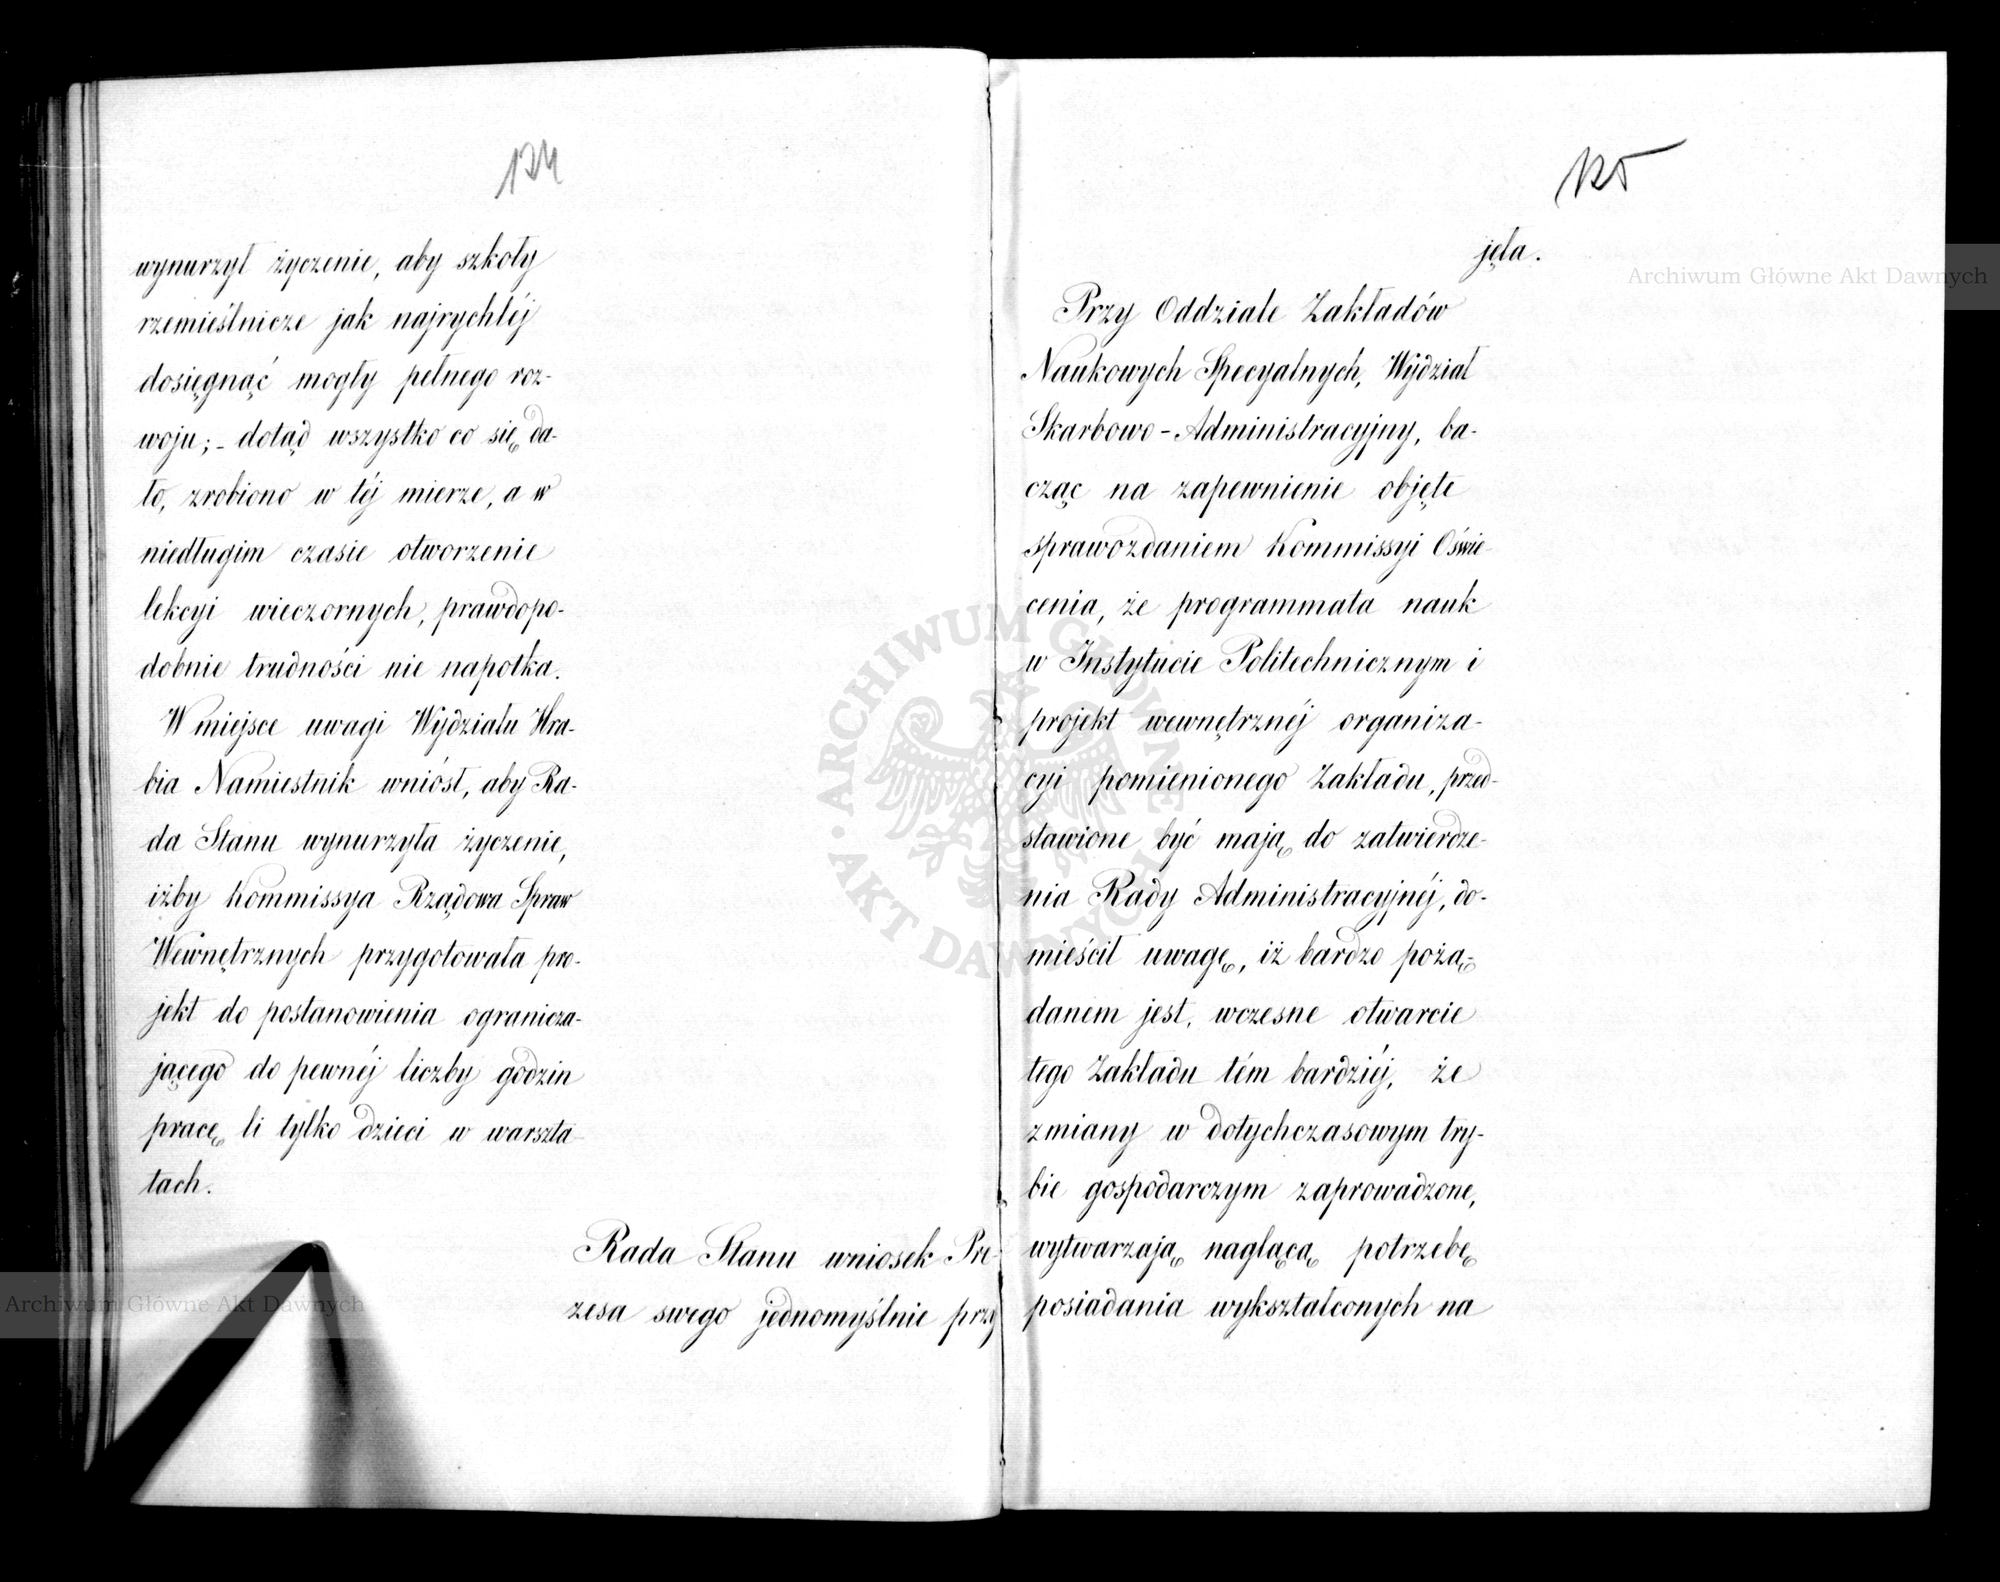 124
wynurzył życzenie, aby szkoły
rzemieślnicze jak najrychléj
dosięgnąć mogły pełnego roz-
woju; - dotąd wszystko co się da-
ło, zrobiono w téj mierze, a w
niedługim czasie otworzenie
lekcyi wieczornych, prawdopo-
dobnie trudności nie napotka.
W miejsce uwagi Wydziału Hra-
bia Namiestnik wniósł, aby Ra-
da Stanu wynurzyła życzenie,
iżby Kommissya Rządowa Spraw
Wewnętrznych przygotowała pro-
jekt do postanowienia ogranicza-
jącego do pewnéj liczby godzin
pracę li tylko dzieci w warszta-
tach.
Rada Stanu wniosek Pre-
zesa swego jednomyślnie przy
125
jęła.
Przy Oddziale Zakładów
Naukowych Specyalnych, Wydział
Skarbowo-Administracyjny, ba-
cząc na zapewnienie objęte
sprawozdaniem Kommissyi Oświe-
cenia, że programmata nauk
w Instytucie Politechnicznym i
projekt wewnętrznéj organiza-
cyi pomienionego Zakładu, przed-
stawione być mają do zatwierdze-
nia Rady Administracyjnéj, do-
mieścił uwagę, iż bardzo pożą-
danem jest, wczesne otwarcie
tego Zakładu tém bardziéj, że
zmiany w dotychczasowym try-
bie gospodarczym zaprowadzone,
wytwarzają naglącą potrzebę
posiadania wykształconych na
Archiwum Główne Akt Dawnych
Archiwum Główne Akt Dawnych
ARCHIWUM GŁÓWNE AKT DAWNYCH